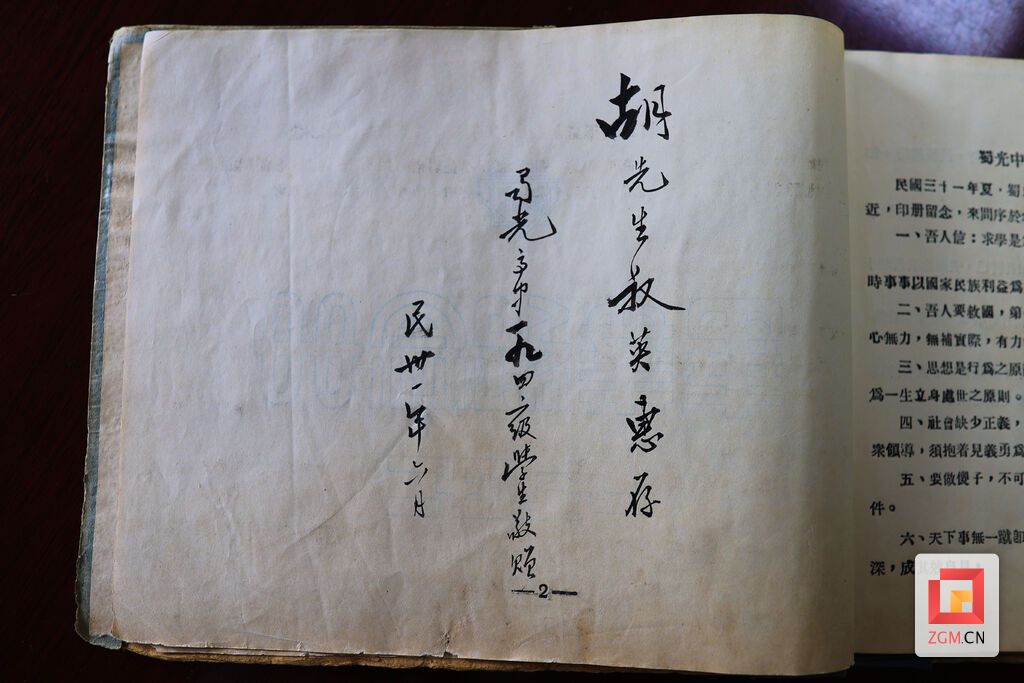 胡先生叔英惠存
蜀光高中一九四二級學生敬贈
民卅一年六月
—2—
蜀光中
民國三十一年夏，蜀
近，印册留念，來問序於
一、吾人信：求學是
時事事以國家民族利益爲
二、吾人要救國，第
心無力，無補實際，有力
三、思想是行爲之原
爲一生立身處世之原則。
四、社會缺少正義，
衆領導，須抱着見義勇爲
五、要做傻子，不可
件。
六、天下事無一蹴卽
深，成其效自見。
ZGM.CN